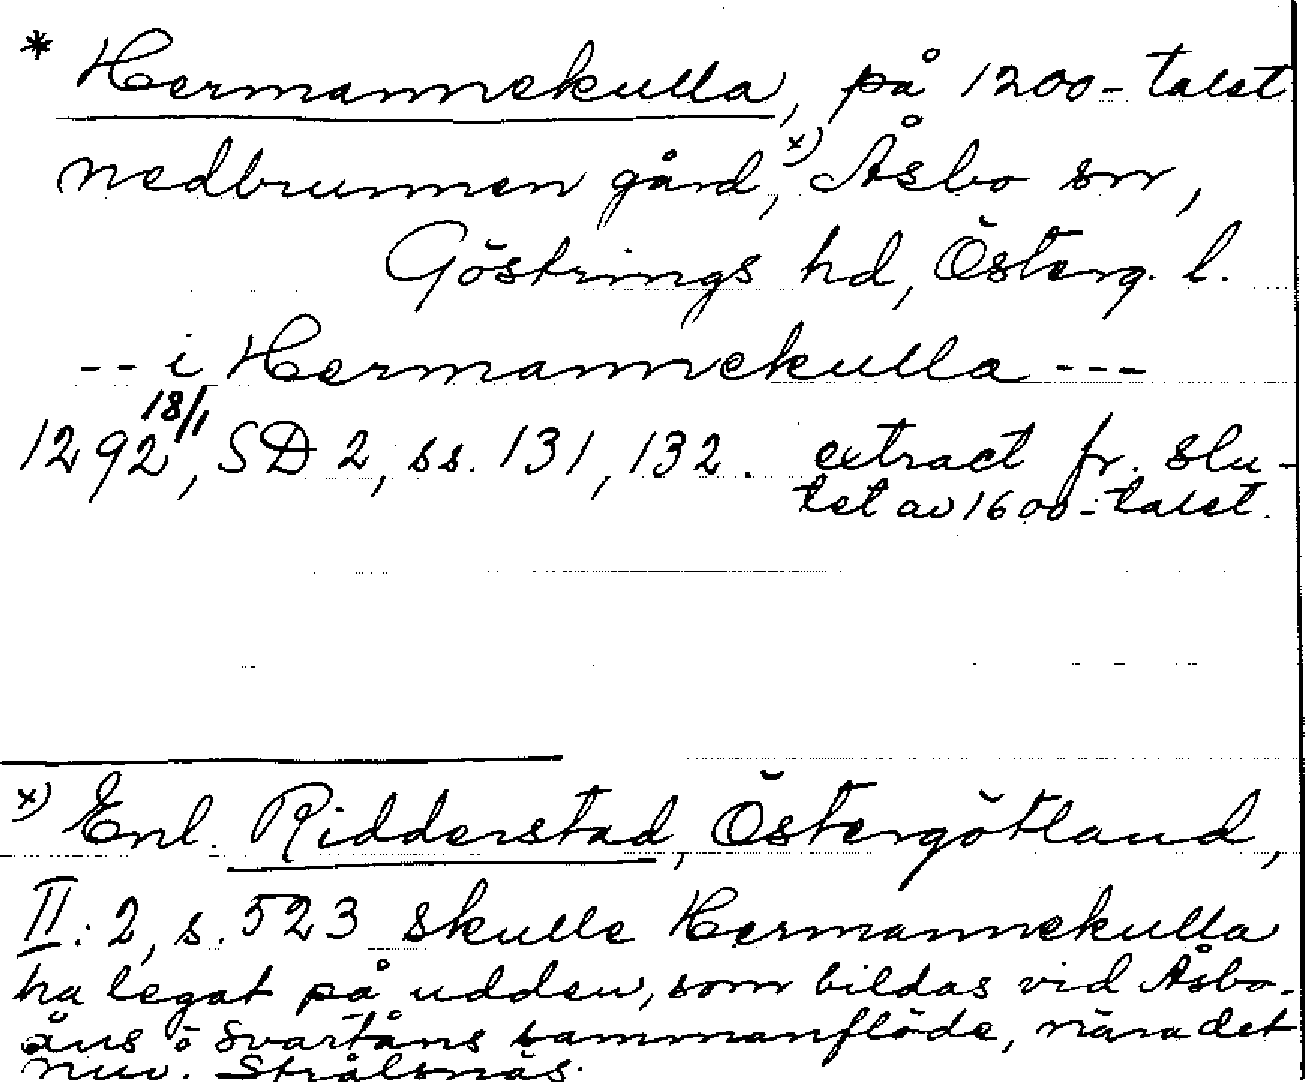 * Hermannekulla, på 1200-talet
nedbrunnen gård, x) Åsbo sn,
Göstrings hd, Österg. l.
-- i Hermannekulla ---
1292 18/1, SD 2, ss. 131, 132. extract fr. slu-
tet av 1600-talet.
x) Enl. Ridderstad, Östergötland,
II: 2, s. 523 skulle Hermannekulla
ha legat på udden, som bildas vid Åsbo-
åns o Svartåns sammanflöde, nära det
nuv. Strålsnäs.